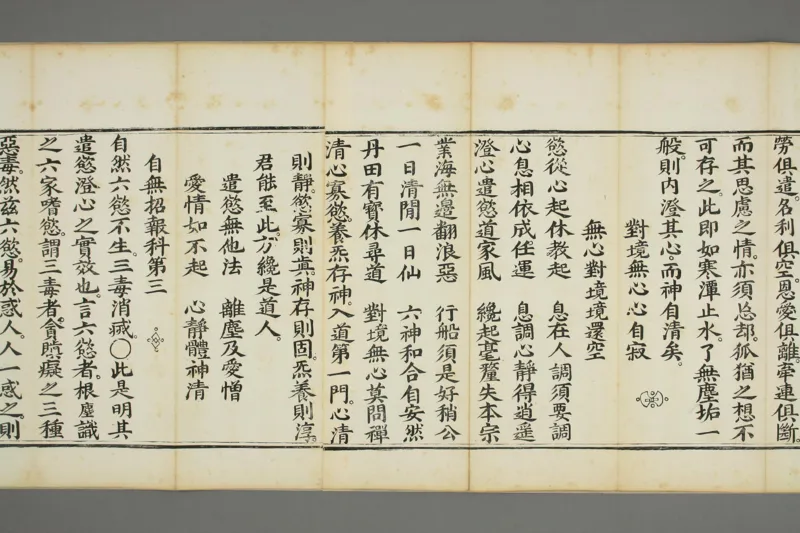 勞俱遣。名利俱空。恩愛俱離。牽連俱斷。
而其思慮之情。亦須忘却。狐猶之想。不
可存之。此即如寒潭止水。了無塵垢一
般。則内澄其心。而神自清矣。
對境無心心自寂
無心對境境還空
慾從心起休教起　息在人調須要調
心息相依成任運　息調心靜得逍遥
澄心遣慾道家風　纔起毫釐失本宗
業海無邊翻浪惡　行船須是好稍公
一日清閒一日仙　六神和合自安然
丹田有寳休尋道　對境無心莫問禪
清心寡慾。養炁存神。入道第一門。心清
則靜。慾寡則真。神存則固。炁養則淳。
君能至此。方纔是道人。
遣慾無他法　離塵及愛憎
愛情如不起　心靜體神清
自無招報科第三
自然六慾不生。三毒消滅。〇此是明其
遣慾澄心之實效也。言六慾者。根塵識
之六家嗜慾。謂三毒者。貪瞋癡之三種
惡毒。然兹六慾。易於惑人。人一惑之。則